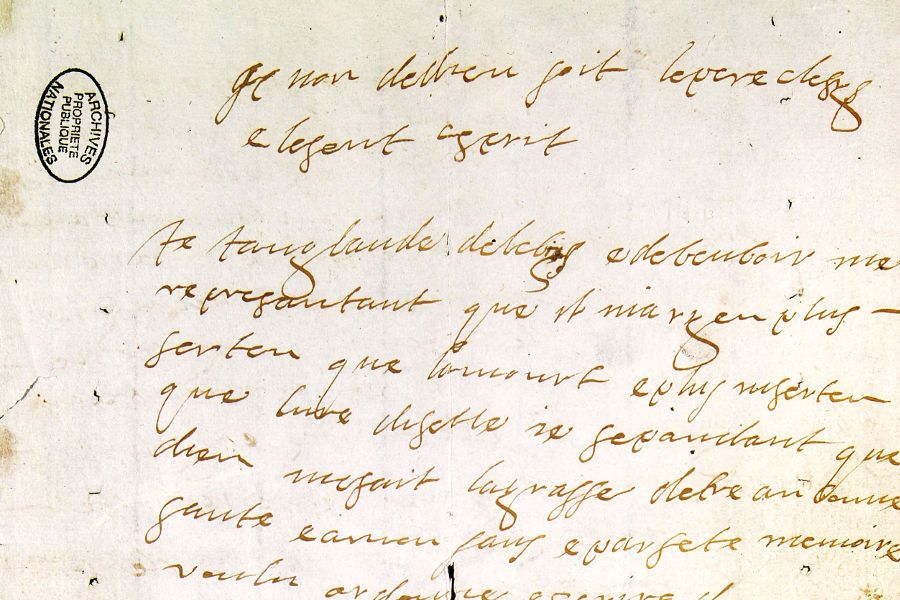 ARCHIVES
PROPRIETE
PUBLIQUE
NATIONALES
non dedieu soit lepere
e lesent esprit
delebis edebeuboir me
represantant que il nia ryen plus
serten que lamourt eplus niserten
que lure diselle ie sepandant que
dieu mesait lagrasse debre an bonne
sante eanun sans eparsete memoire
voulu